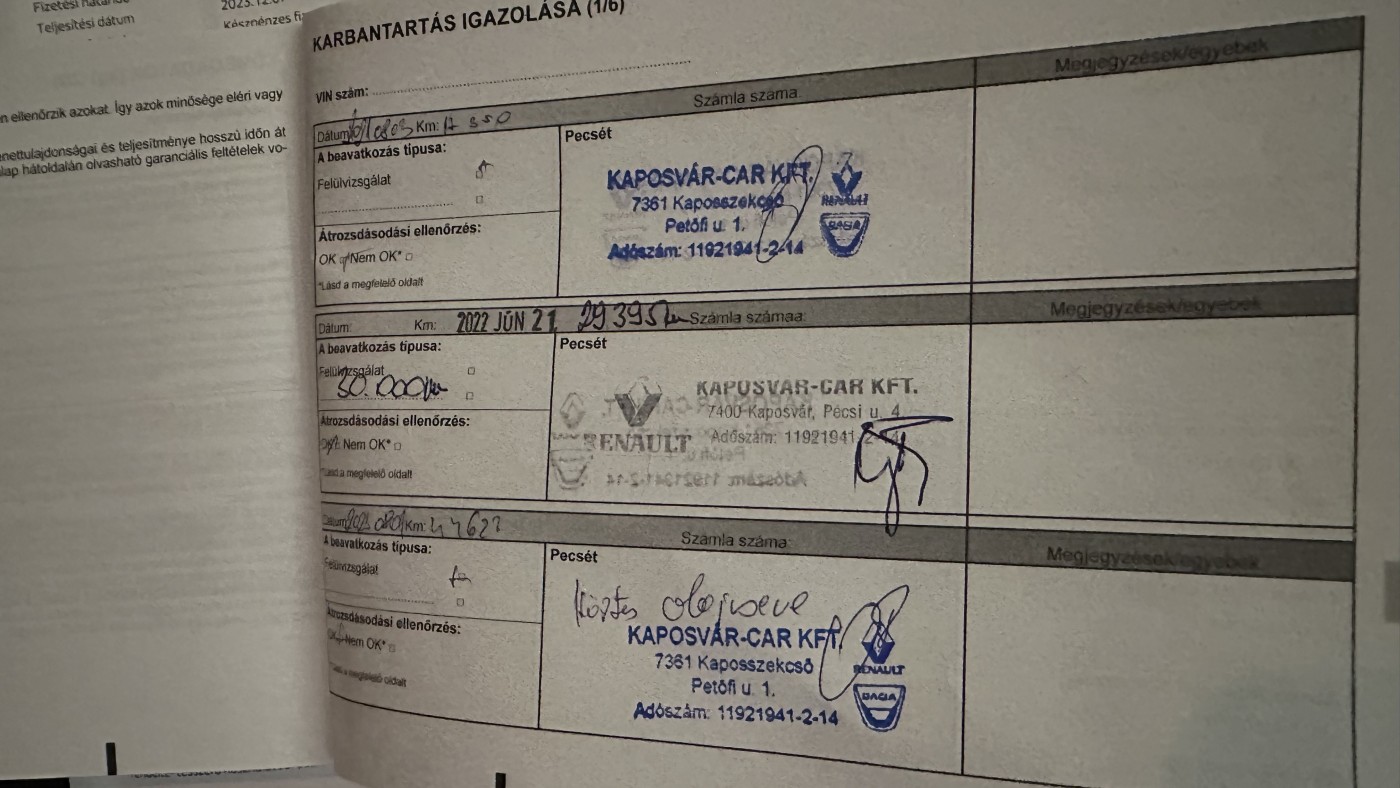 Fizetési határidő
Teljesítési dátum
2023.12.
Készpénzes
n ellenőrzik azokat. Így azok minősége eléri vagy
nettulajdonságai és teljesítménye hosszú időn át
lap hátoldalán olvasható garanciális feltételek vo-
KARBANTARTÁS IGAZOLÁSA (1/6)
VIN szám:
Számla száma:
Megjegyzések/egyebek
Dátum Km: 17 350
A beavatkozás típusa:
Felülvizsgálat
Átrozsdásodási ellenőrzés:
OK Nem OK*
*Lásd a megfelelő oldalt
Pecsét
KAPOSVÁR-CAR KFT.
7361 Kaposszekcső
Petőfi u. 1.
Adószám: 11921941-2-14
RENAULT
DACIA
Dátum: Km: 2022 JÚN 21. 29395 km Számla számaa:
Megjegyzések/egyebek
A beavatkozás típusa:
Felülvizsgálat
30.000 km
Átrozsdásodási ellenőrzés:
OK Nem OK*
*Lásd a megfelelő oldalt
Pecsét
KAPOSVÁR-CAR KFT.
7400 Kaposvár, Pécsi u. 4
RENAULT
Adószám: 11921941-2-14
Dátum Km: 44622
Számla száma:
Megjegyzések/egyebek
A beavatkozás típusa:
Felülvizsgálat
Átrozsdásodási ellenőrzés:
OK Nem OK*
*Lásd a megfelelő oldalt
Pecsét
Köztes olajcsere
KAPOSVÁR-CAR KFT.
7361 Kaposszekcső
Petőfi u. 1.
Adószám: 11921941-2-14
RENAULT
DACIA